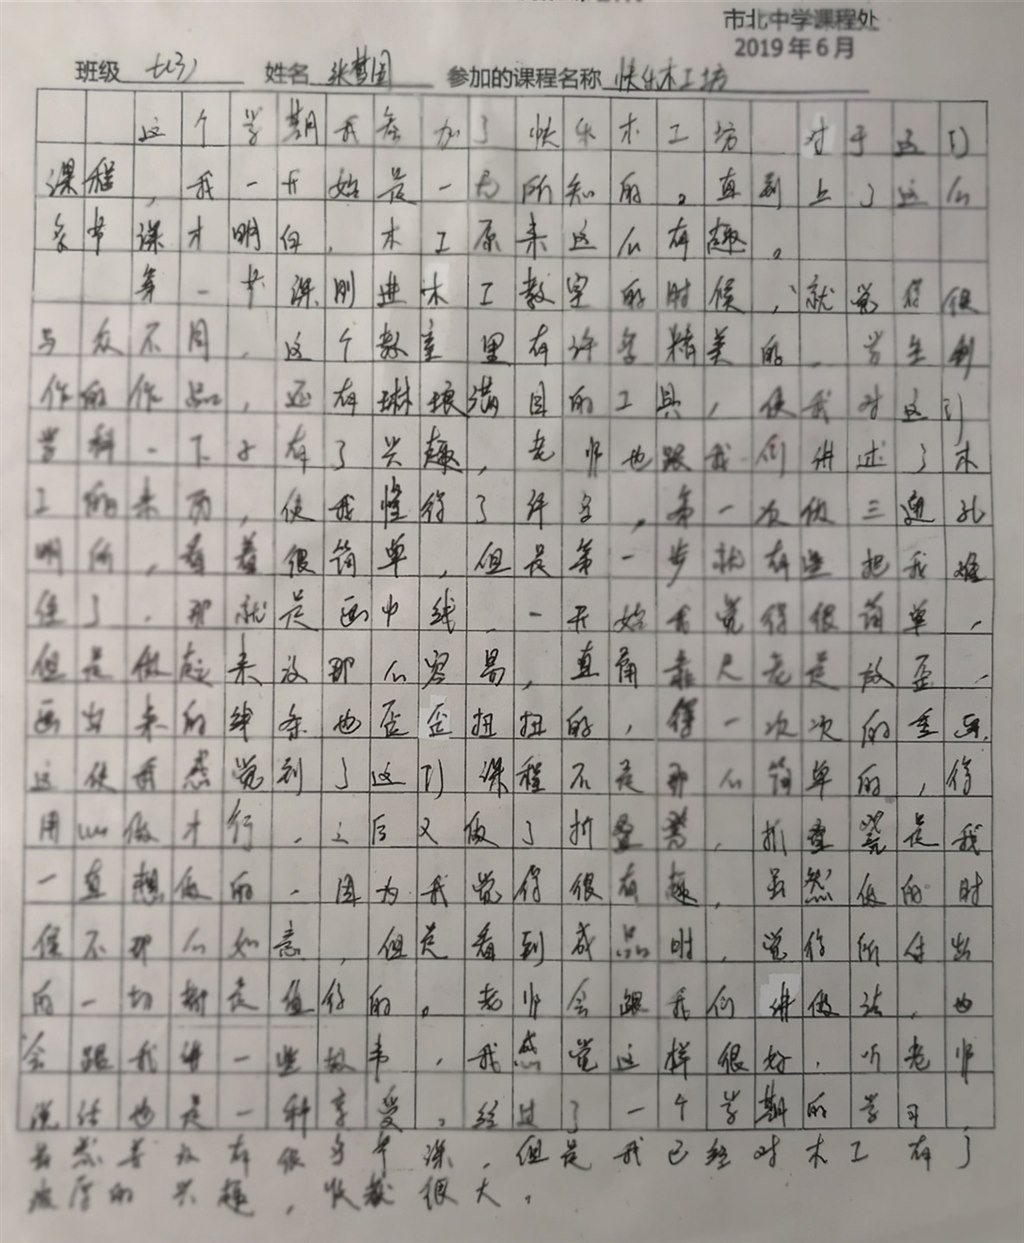 市北中学课程处
2019年6月
班级 七(3) 姓名 张梦圆 参加的课程名称 快乐木工坊
这个学期我参加了快乐木工坊 对于这门
课程，我一开始是一无所知的。直到上了这么
多节课才明白，木工原来这么有趣。
第一节课刚进木工教室的时候，就觉得很
与众不同，这个教室里有许多精美的，学生制
作的作品，还有琳琅满目的工具，使我对这门
学科一下子有了兴趣，老师也跟我们讲述了木
工的来历，使我懂得了许多，第一次做三通孔
明锁，看着很简单，但是第一步就有些把我难
住了，那就是画中线，一开始我觉得很简单，
但是做起来没那么容易，直角靠尺老是放歪，
画出来的线条也歪歪扭扭的，得一次次的重画，
这使我感觉到了这门课程不是那么简单的，得
用心做才行，之后又做了折叠凳，折叠凳是我
一直想做的，因为我觉得很有趣，虽然做的时
候不那么如意，但是看到成品时，觉得所付出
的一切都是值得的。老师会跟我们讲做法，也
会跟我讲一些故事，我感觉这样很好，听老师
说话也是一种享受。经过了一个学期的学习
虽然并没有很多节课，但是我已经对木工有了
浓厚的兴趣，收获很大。